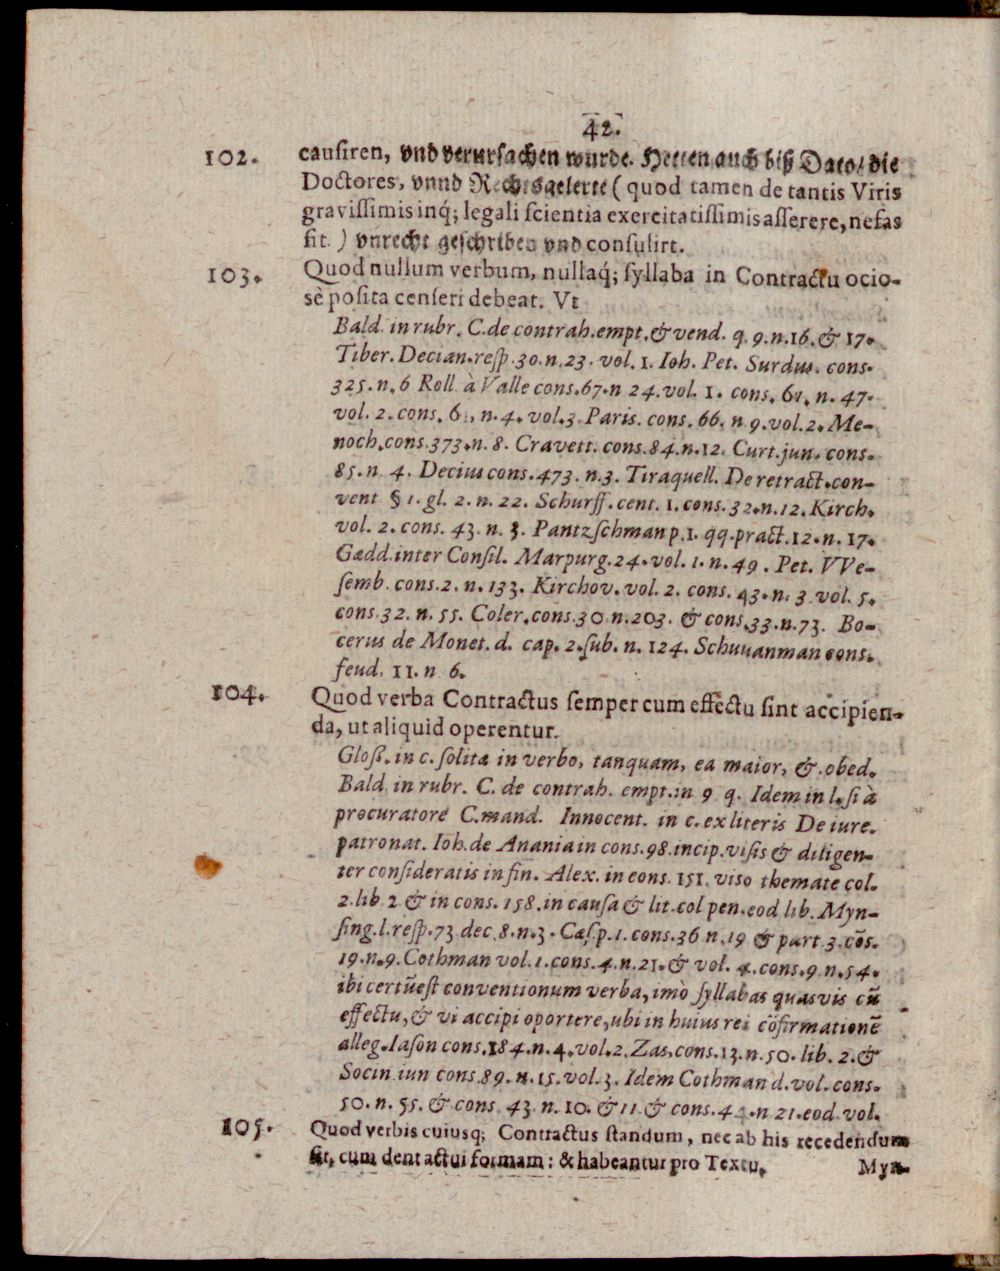 42.
102. causiren, vnd verursachen wurde. Hetten auch biß Dato/ die
Doctores, vnnd Rechtsgelerte ( quod tamen de tantis Viris
gravissimis inq́; legali scientia exercitatissimis asserere, nefas
sit. ) vnrecht geschriben vnd consulirt.
103. Quod nullum verbum, nullaq́; syllaba in Contractu ocio-
sè posita censeri debeat. Vt
Bald. in rubr. C. de contrah. empt. & vend. q. 9. n. 16. & 17.
Tiber. Decian. resp. 30. n. 23. vol. 1. Ioh. Pet. Surdus. cons.
325. n. 6 Roll. à Valle cons. 67. n 24. vol. 1. cons. 61, n. 47.
vol. 2. cons. 6, n. 4. vol. 3 Paris. cons. 66. n 9. vol. 2. Me-
noch. cons. 373. n. 8. Cravett. cons. 84. n. 12. Curt. jun. cons.
85. n. 4. Decius cons. 473. n. 3. Tiraquell. De retract. con-
vent § 1. gl. 2. n. 22. Schurff. cent. 1. cons. 32. n. 12. Kirch.
vol. 2. cons. 43. n. 3. Pantzschman p. 1. qq. pract. 12. n. 17.
Gædd. inter Consil. Marpurg. 24. vol. 1. n. 49. Pet. VVe-
semb. cons. 2. n. 133. Kirchov. vol. 2. cons. 43. n. 3 vol. 5.
cons. 32. n. 55. Coler. cons. 30 n. 203. & cons. 33. n. 73. Bo-
cerus de Monet. d. cap. 2. sub. n. 124. Schuuanman cons.
feud. 11. n 6.
104. Quod verba Contractus semper cum effectu sint accipien-
da, ut aliquid operentur.
Gloß. in c. solitæ in verbo, tanquam, ea maior, & obed.
Bald. in rubr. C. de contrah. empt. in 9 q. Idem in l. si à
procuratore C. mand. Innocent. in c. ex literis De iure.
patronat. Ioh. de Anania in cons. 98. incip. visis & diligen-
ter consideratis in fin. Alex. in cons. 151. viso themate col.
2. lib 2 & in cons. 158. in causa & lit. col pen. eod lib. Myn-
sing. l. resp. 73 dec. 8. n. 3. Cæs. p. 1. cons. 36 n. 19 & part 3. cōs.
19. n. 9. Cothman vol. 1. cons. 4. n. 21. & vol. 4. cons. 9 n. 54.
ibi certūest conventionum verba, imò syllabas quasvis cū
effectu, & vi accipi oportere, ubi in huius rei cōfirmationē
alleg. Iason cons. 184. n. 4. vol. 2. Zas. cons. 13. n. 50. lib. 2. &
Socin iun cons. 89. n. 15. vol. 3. Idem Cothman d. vol. cons.
50. n. 55. & cons 43 n. 10. & 11 & cons. 4 n 21. eod vol.
105. Quod verbis cuiusq; Contractus standum, nec ab his recedendum
sit, cum dent actui formam: & habeantur pro Textu.
Myn-